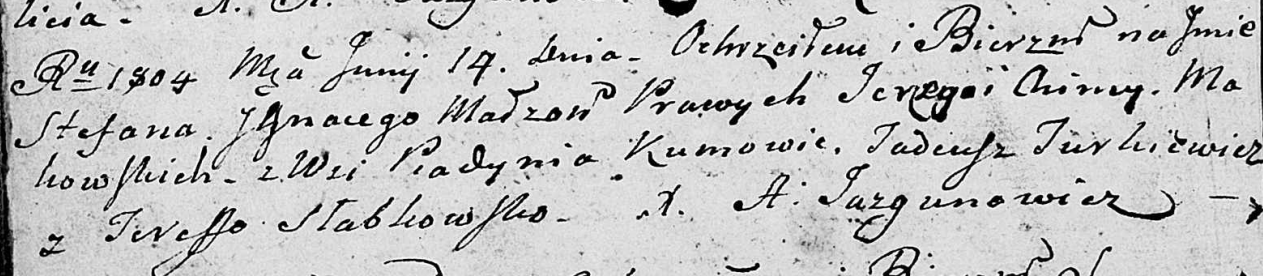 licia.
Ru 1804 Mca Junij 14. Dnia. Ochrzciłem i Bierzm na Jmie
Stefana. Jgnacego Małzon Prawych Jerzego i Chimy. Ma
kowskich. z Wsi Kumowie. Tadeusz Turkiewicz
z Teressą Słabkowsko. X. A. Jazgunowicz